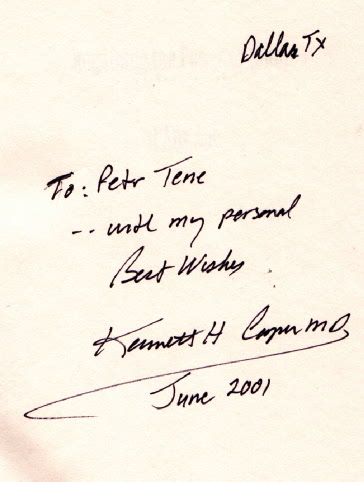 Dallas TX
To: Petr Tene
-- with my personal
Best Wishes
Kenneth H Cooper MD
June 2001